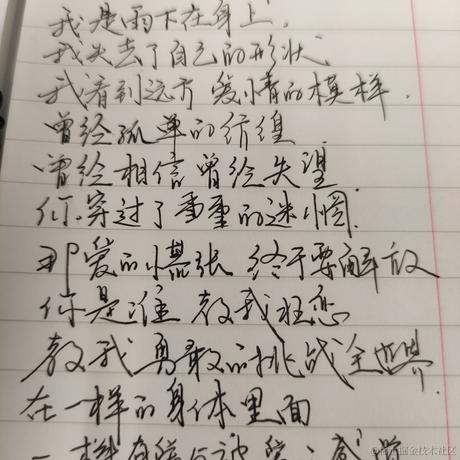 我是雨下在身上,
我失去了自己的形状、
我看到远方 爱情的模样.
曾经孤单的彷徨.
曾经相信 曾经失望.
你穿过了重重的迷惘.
那爱的慌张 终于要解放
你是谁 教我狂恋
教我勇敢的挑战全世界.
在一样的身体里面
一样
@稀土掘金技术社区